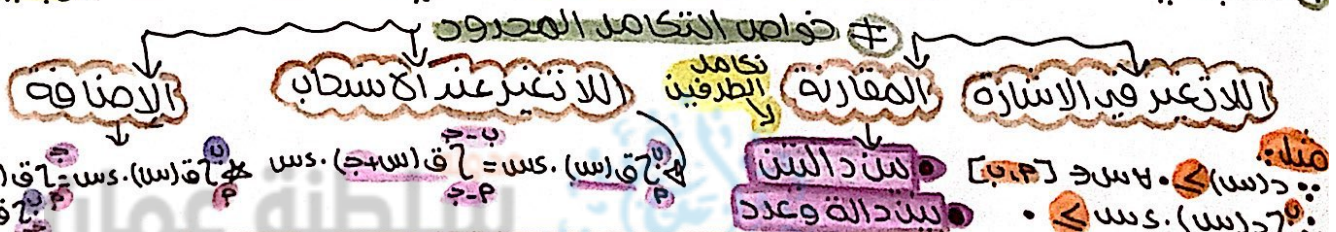 خواص التكامل المحدود
اللاتغير في الإشارة
المقارنة
تكامل الطرفين
لا
اللاتغير عند الانسحاب
الإضافة
مثل:
∵ د(س) ≥ ٠ ∀ س ∈ [م، ب]
∴ ∫ د(س) . ءس ≥ ٠
بين دالتين
بين دالة وعدد
ب م ∫ ق(س) . ءس = ب-ج م-ج ∫ ق(س+ج) . ءس
ب م ∫ ق(س) . ءس = ج م ∫ ق(
سلطنة عمان